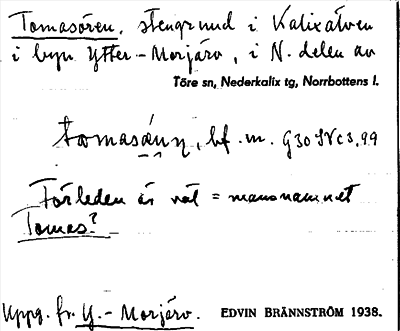 Tomasören, stengrund i Kalixälven
i byn Ytter-Morjärv, i N. delen av
Töre sn, Nederkalix tg, Norrbottens l.
bf. m.
Förleden är väl = mansnamnet
Tomas?
Uppg. fr. Y.-Morjärv. EDVIN BRÄNNSTRÖM 1938.